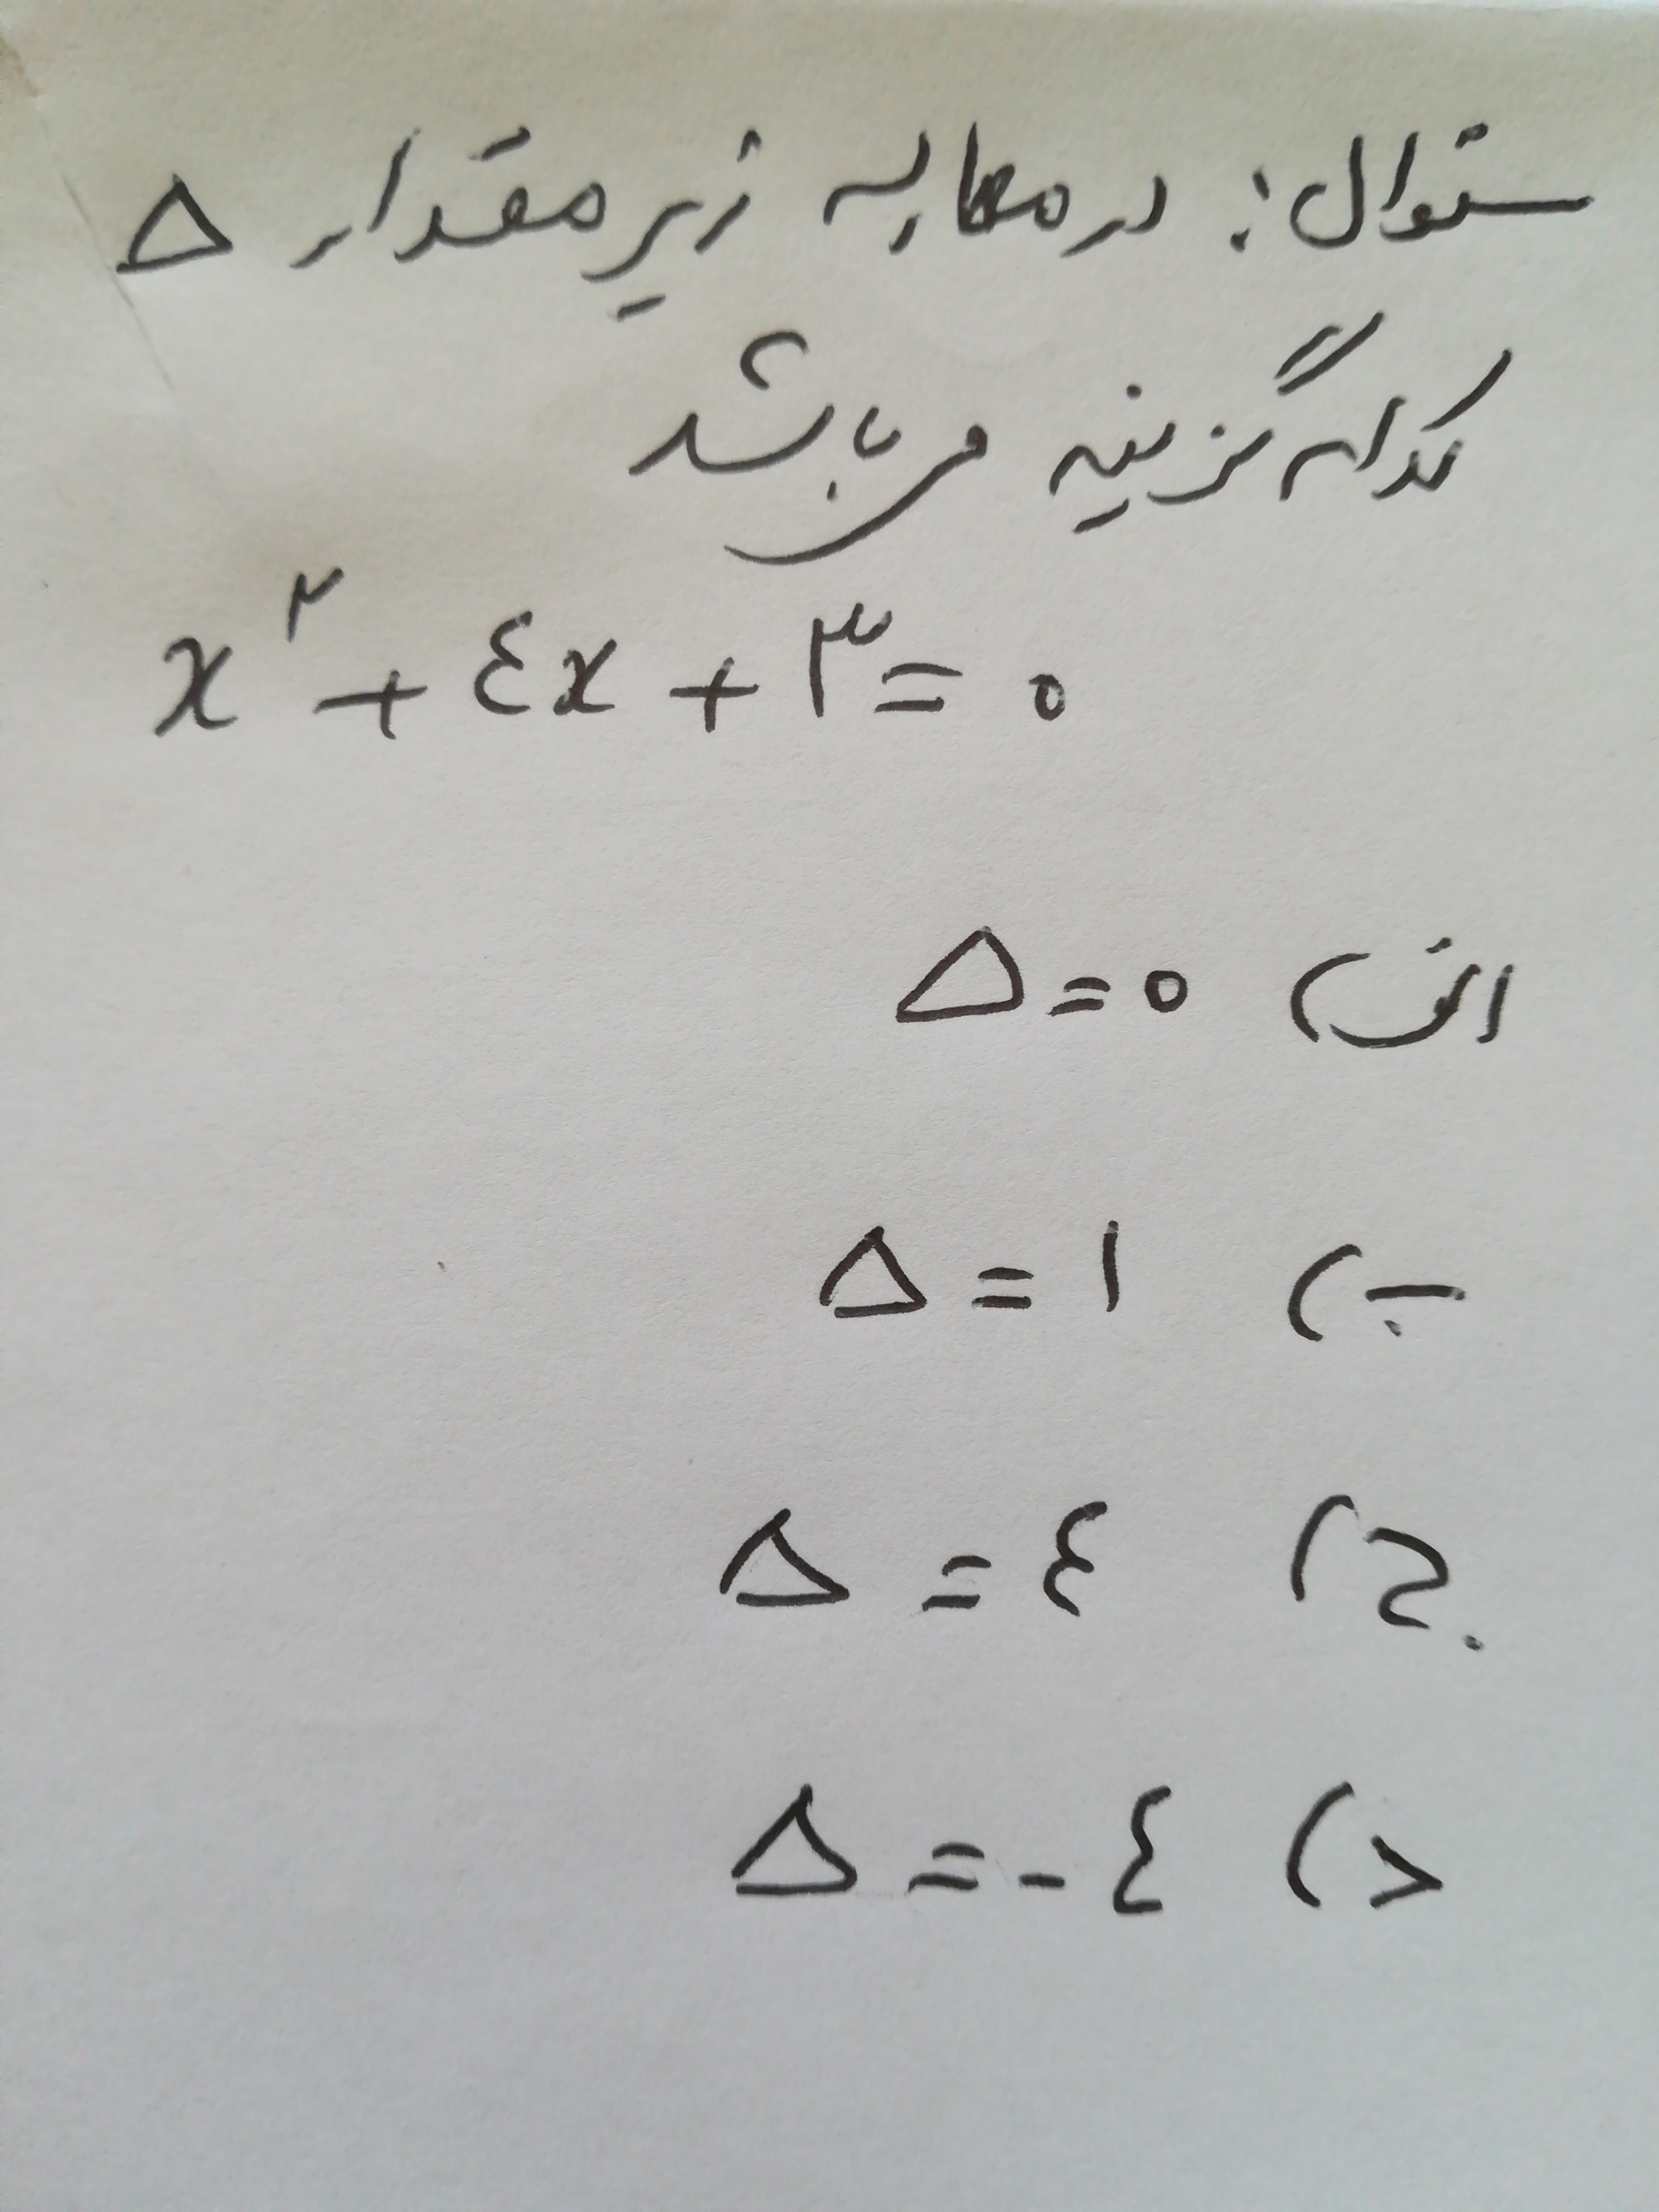 سئوال: در معادله زیر مقدار Δ
کدام گزینه می باشد؟
x² + ٤x + ۳ = ۰
الف) Δ = ۰
ب) Δ = ۱
ج) Δ = ٤
د) Δ = -٤